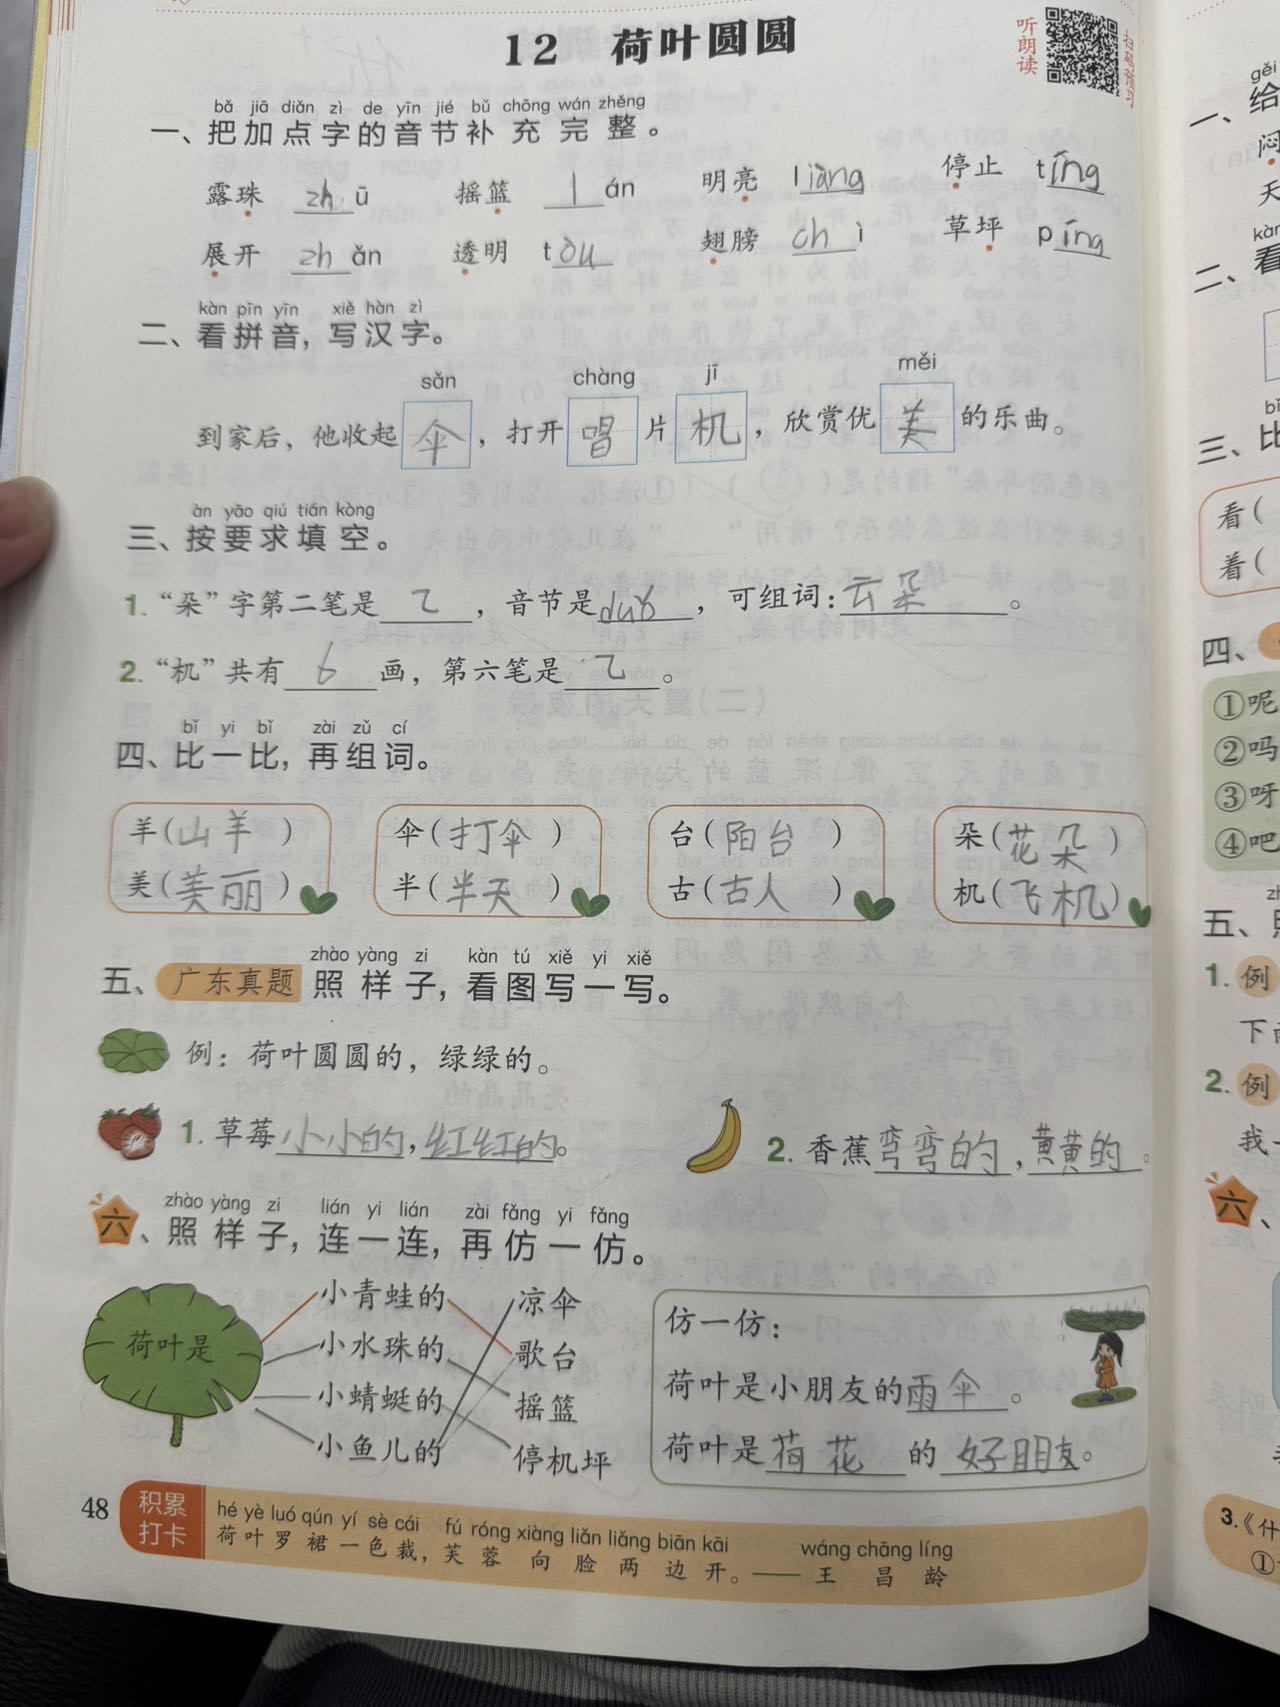 12 荷叶圆圆
听朗读
扫码预习
bǎ jiā diǎn zì de yīn jié bǔ chōng wán zhěng
一、把加点字的音节补充完整。
露珠 zhū 摇篮 lán 明亮 liàng 停止 tíng
展开 zhǎn 透明 tòu 翅膀 chì 草坪 píng
kàn pīn yīn xiě hàn zì
二、看拼音，写汉字。
sǎn chàng jī měi
到家后，他收起伞，打开唱片机，欣赏优美的乐曲。
àn yāo qiú tián kòng
三、按要求填空。
1. “朵”字第二笔是㇈，音节是duǒ，可组词：云朵。
2. “机”共有6画，第六笔是㇈。
bǐ yi bǐ zài zǔ cí
四、比一比，再组词。
羊(山羊) 伞(打伞) 台(阳台) 朵(花朵)
美(美丽) 半(半天) 古(古人) 机(飞机)
zhào yàng zi kàn tú xiě yi xiě
五、广东真题 照样子，看图写一写。
例：荷叶圆圆的，绿绿的。
1. 草莓小小的，红红的。 2. 香蕉弯弯的，黄黄的。
zhào yàng zi lián yi lián zài fǎng yi fǎng
六、照样子，连一连，再仿一仿。
荷叶是
小青蛙的 凉伞
小水珠的 歌台
小蜻蜓的 摇篮
小鱼儿的 停机坪
仿一仿：
荷叶是小朋友的雨伞。
荷叶是荷花的好朋友。
48 积累打卡
hé yè luó qún yí sè cái fú róng xiàng liǎn liǎng biān kāi wáng chāng líng
荷叶罗裙一色裁，芙蓉向脸两边开。——王昌龄
gěi
一、给
闷
天
kàn
二、看
bǐ
三、比
看(
着(
四、
①呢
②吗
③呀
④吧
五、
1. 例
下
2. 例
我
六、
3.《什
①